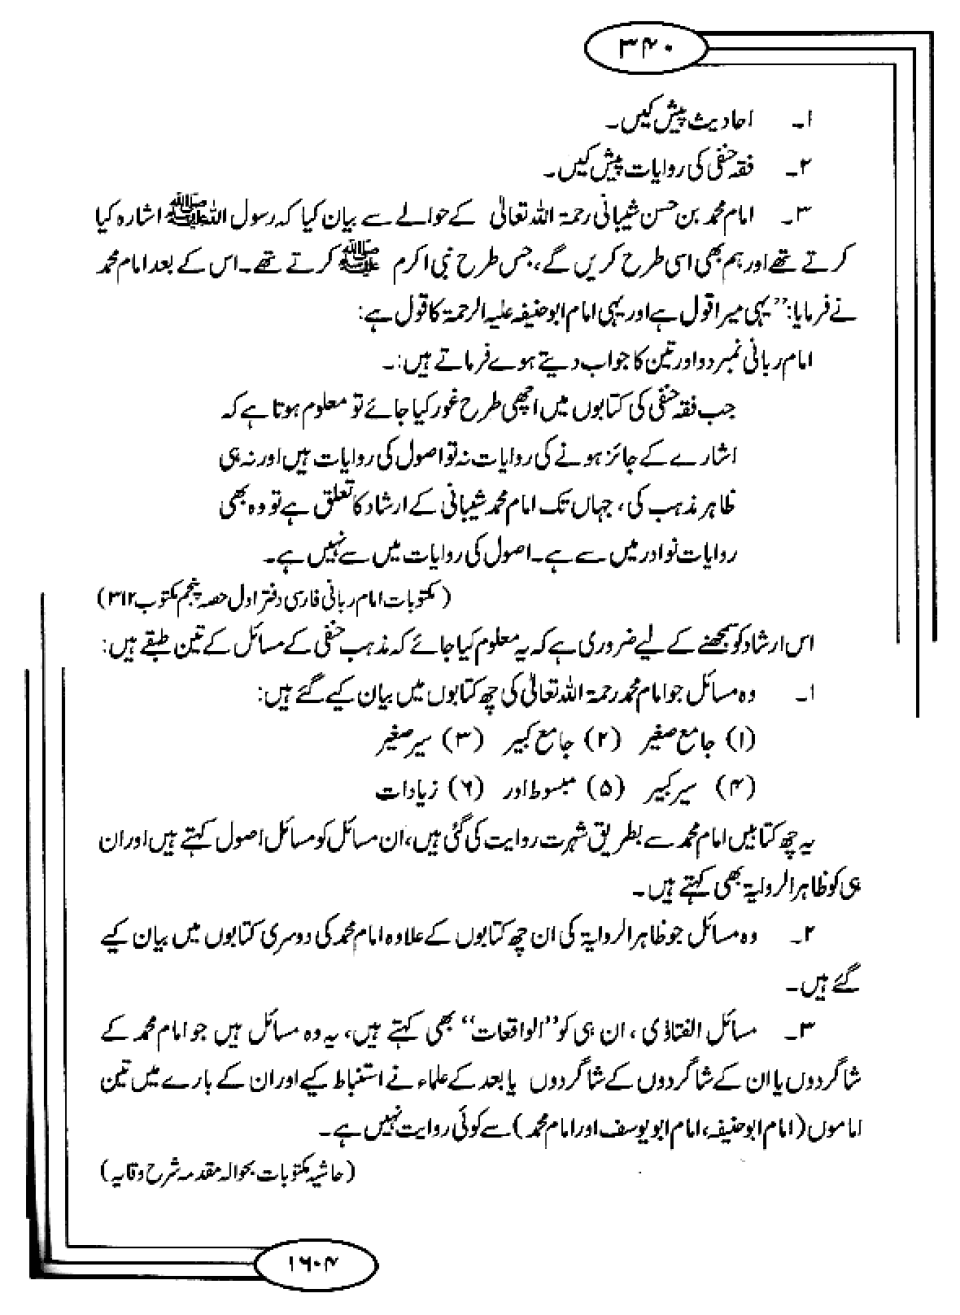 ۳۴۰
۱۔ احادیث پیش کیں۔
۲۔ فقہ حنفی کی روایات پیش کیں۔
۳۔ امام محمد بن حسن شیبانی رحمۃ اللہ تعالیٰ کے حوالے سے بیان کیا کہ رسول اللہ ﷺ اشارہ کیا
کرتے تھے اور ہم بھی اسی طرح کریں گے، جس طرح نبی اکرم ﷺ کرتے تھے۔ اس کے بعد امام محمد
نے فرمایا: ”یہی میرا قول ہے اور یہی امام ابو حنیفہ علیہ الرحمۃ کا قول ہے:
امام ربانی نمبر دو اور تین کا جواب دیتے ہوے فرماتے ہیں:۔
جب فقہ حنفی کی کتابوں میں اچھی طرح غور کیا جائے تو معلوم ہوتا ہے کہ
اشارے کے جائز ہونے کی روایات نہ تو اصول کی روایات ہیں اور نہ ہی
ظاہر مذہب کی، جہاں تک امام محمد شیبانی کے ارشاد کا تعلق ہے تو وہ بھی
روایات نوادر میں سے ہے۔ اصول کی روایات میں سے نہیں ہے۔
(مکتوبات امام ربانی فارسی دفتر اول حصہ پنجم مکتوب ۳۱۲)
اس ارشاد کو سمجھنے کے لیے ضروری ہے کہ یہ معلوم کیا جائے کہ مذہب حنفی کے مسائل کے تین طبقے ہیں:
۱۔ وہ مسائل جو امام محمد رحمۃ اللہ تعالیٰ کی چھ کتابوں میں بیان کیے گئے ہیں:
(۱) جامع صغیر (۲) جامع کبیر (۳) سیر صغیر
(۴) سیر کبیر (۵) مبسوط اور (۶) زیادات
یہ چھ کتابیں امام محمد سے بطریق شہرت روایت کی گئی ہیں، ان مسائل کو مسائل اصول کہتے ہیں اور ان
ہی کو ظاہر الروایۃ بھی کہتے ہیں۔
۲۔ وہ مسائل جو ظاہر الروایۃ کی ان چھ کتابوں کے علاوہ امام محمد کی دوسری کتابوں میں بیان کیے
گئے ہیں۔
۳۔ مسائل الفتاوٰی، ان ہی کو ”الواقعات“ بھی کہتے ہیں، یہ وہ مسائل ہیں جو امام محمد کے
شاگردوں یا ان کے شاگردوں کے شاگردوں یا بعد کے علماء نے استنباط کیے اور ان کے بارے میں تین
اماموں (امام ابو حنیفہ، امام ابو یوسف اور امام محمد) سے کوئی روایت نہیں ہے۔
(حاشیہ مکتوبات بحوالہ مقدمہ شرح وقایہ)
۱۶۰۴